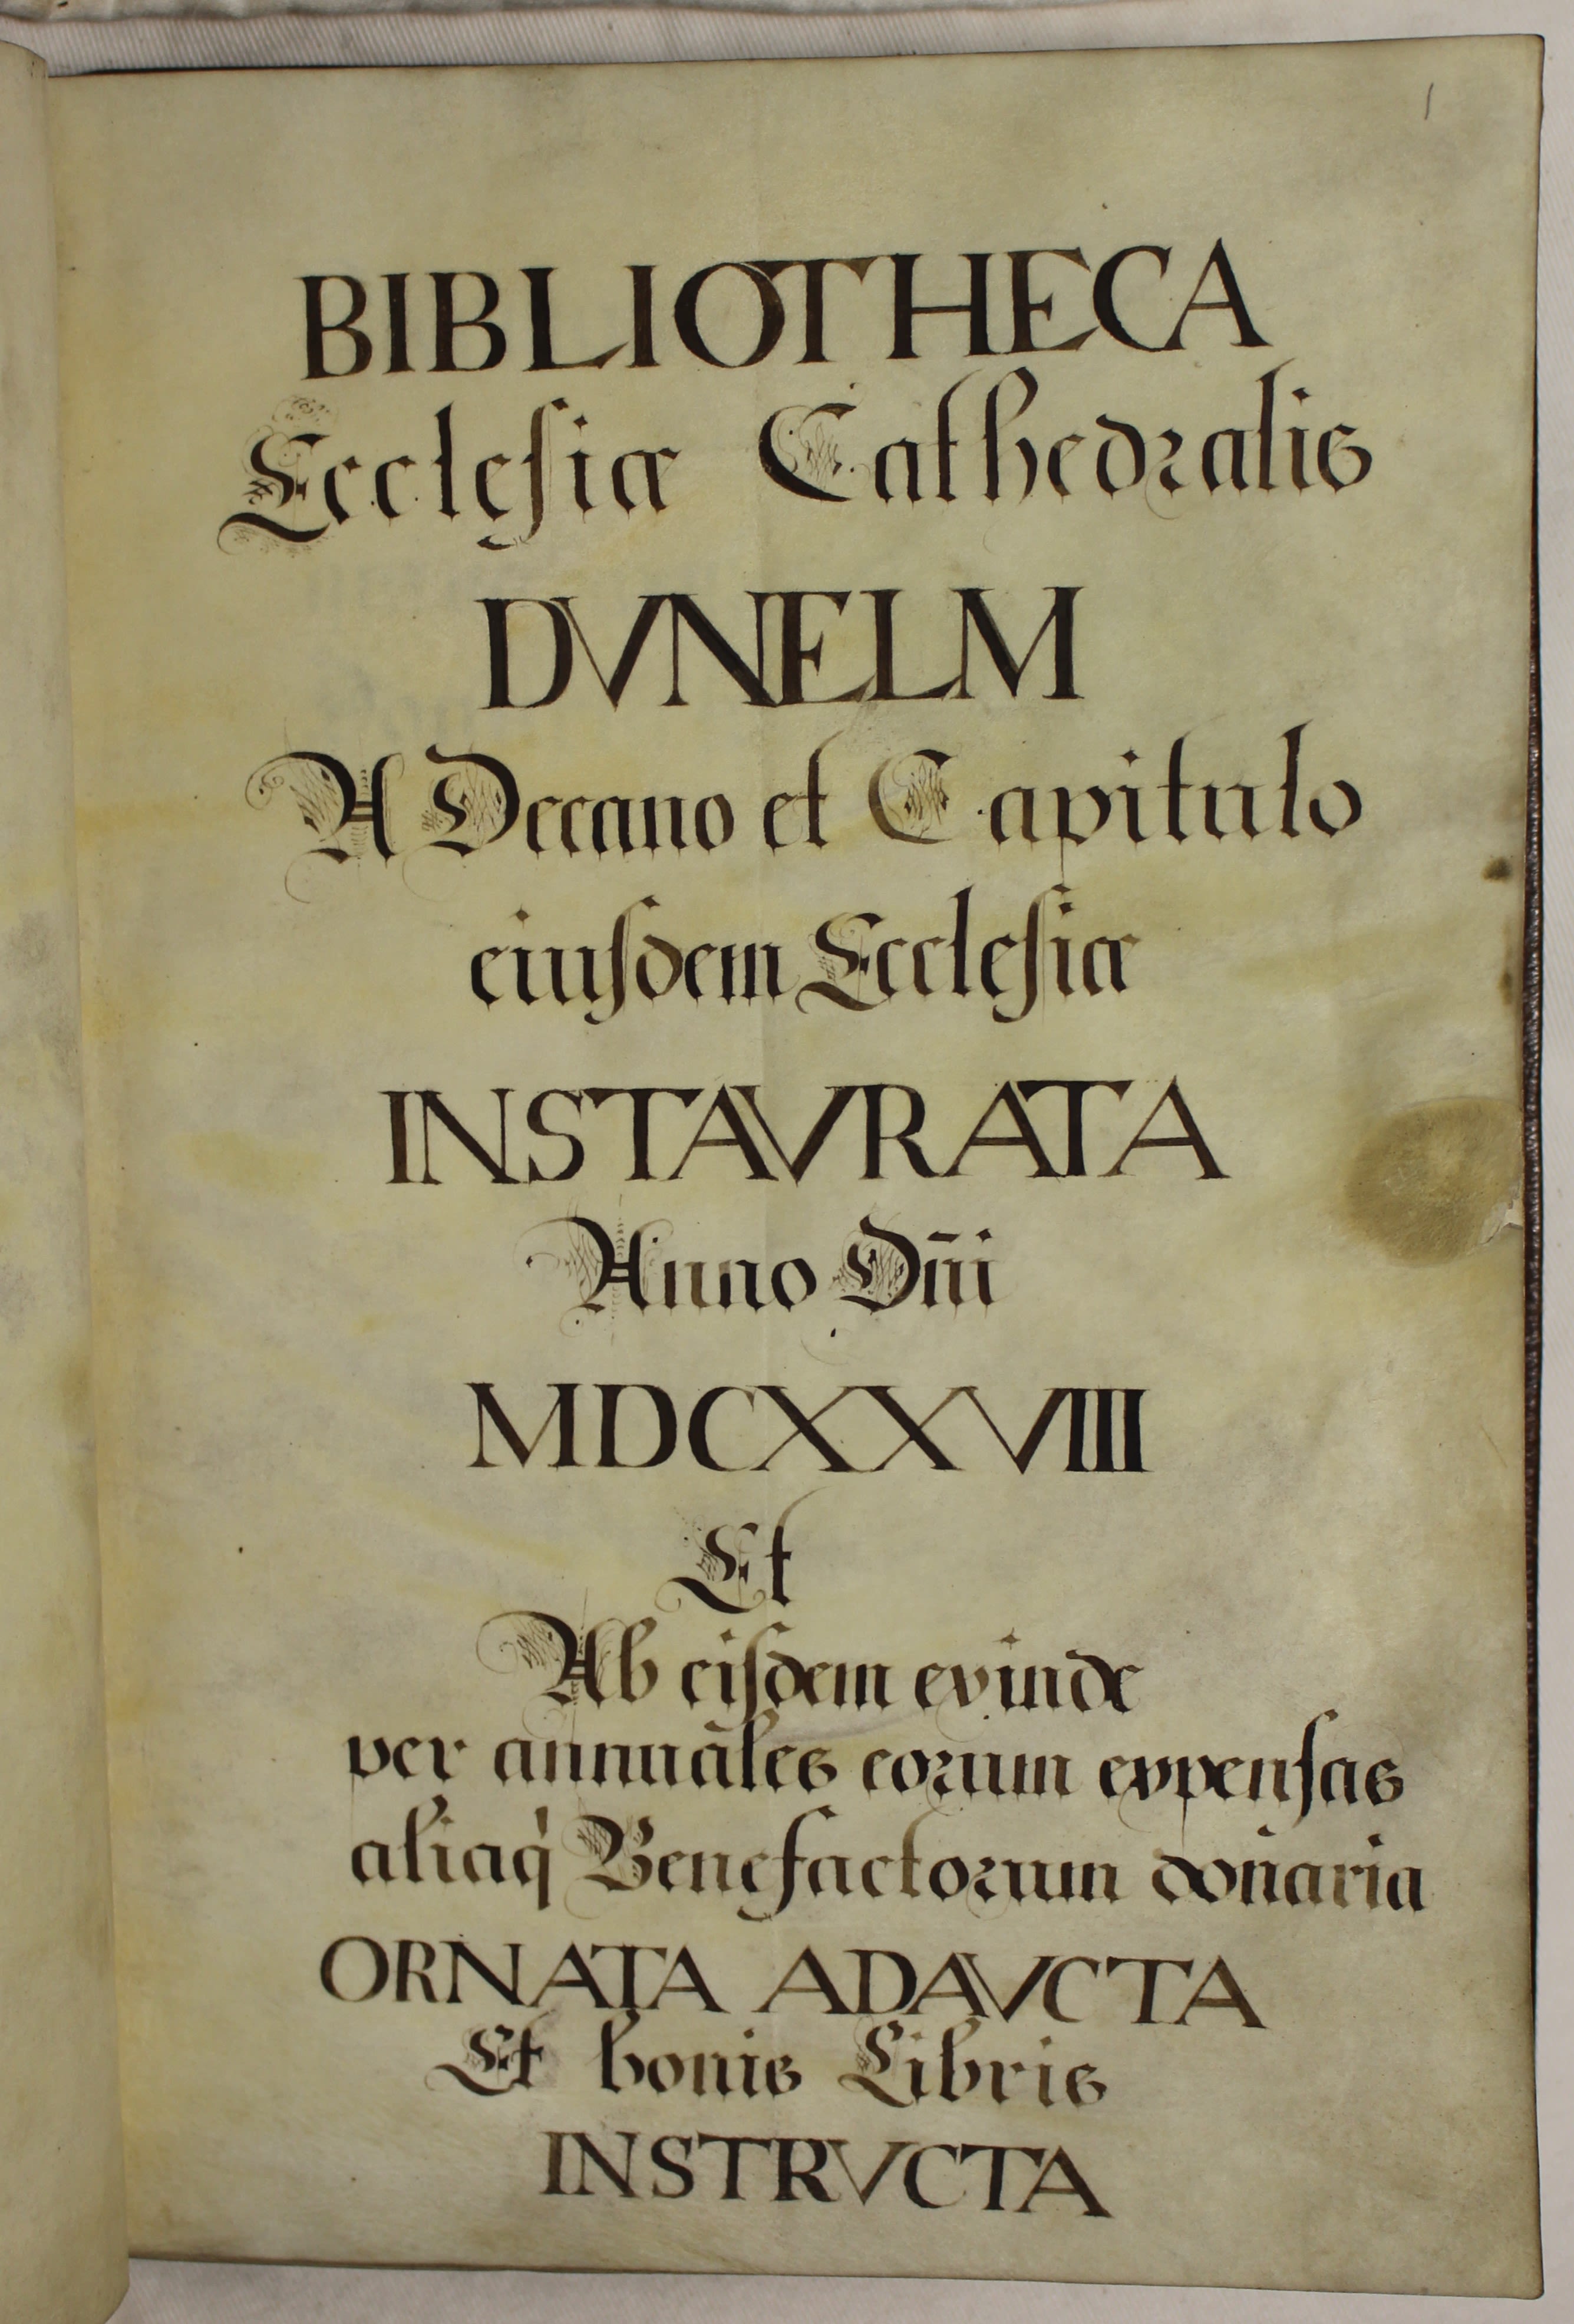 1
BIBLIOTHECA
Ecclesiæ Cathedralis
DVNELM
A Decano et Capitulo
eiusdem Ecclesiæ
INSTAVRATA
Anno Dn̄i
MDCXXVIII
Et
Ab eisdem exinde
per annuāles eorum expensas
aliaq' Benefactorum donaria
ORNATA ADAVCTA
Et bonis Libris
INSTRVCTA